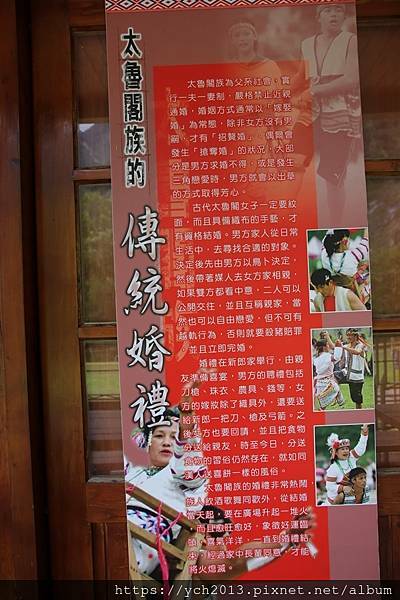 太魯閣族的
傳統婚禮
太魯閣族為父系社會，實
行一夫一妻制，嚴格禁止近親
通婚，婚姻方式通常以「嫁娶
婚」為常態，除非女方沒有男
嗣，才有「招贅婚」，偶爾會
發生「搶奪婚」的狀況，大部
分是男方求婚不得，或是發生
三角戀愛時，男方就會以出草
的方式取得芳心。
古代太魯閣女子一定要紋
面，而且具備織布的手藝，才
有資格結婚。男方家人從日常
生活中，去尋找合適的對象。
決定後先由男方以鳥卜決定，
然後帶著媒人去女方家相親，
如果雙方都看中意，二人可以
公開交往，並且互稱親家，當
然也可以自由戀愛，但不可有
越軌行為，否則就要殺豬賠罪
，並且立即完婚。
婚禮在新郎家舉行，由親
友準備喜宴，男方的聘禮包括
刀槍、珠衣、農具、錢等，女
方的嫁妝除了織具外，還要送
給新郎一把刀、槍及弓箭。之
後女方也要回請，並且把食物
分送給親友，時至今日，分送
食物的習俗仍然存在，就如同
漢人送喜餅一樣的風俗。
太魯閣族的婚禮非常熱鬧，
族人飲酒歌舞同歡外，從結婚
當天起，要在廣場升起一堆火
，而且愈旺愈好，象徵好運臨
頭，喜氣洋洋，一直到婚禮結
束，經過家中長輩同意，才能
將火熄滅。
https://ych2013.pixnet.net/album